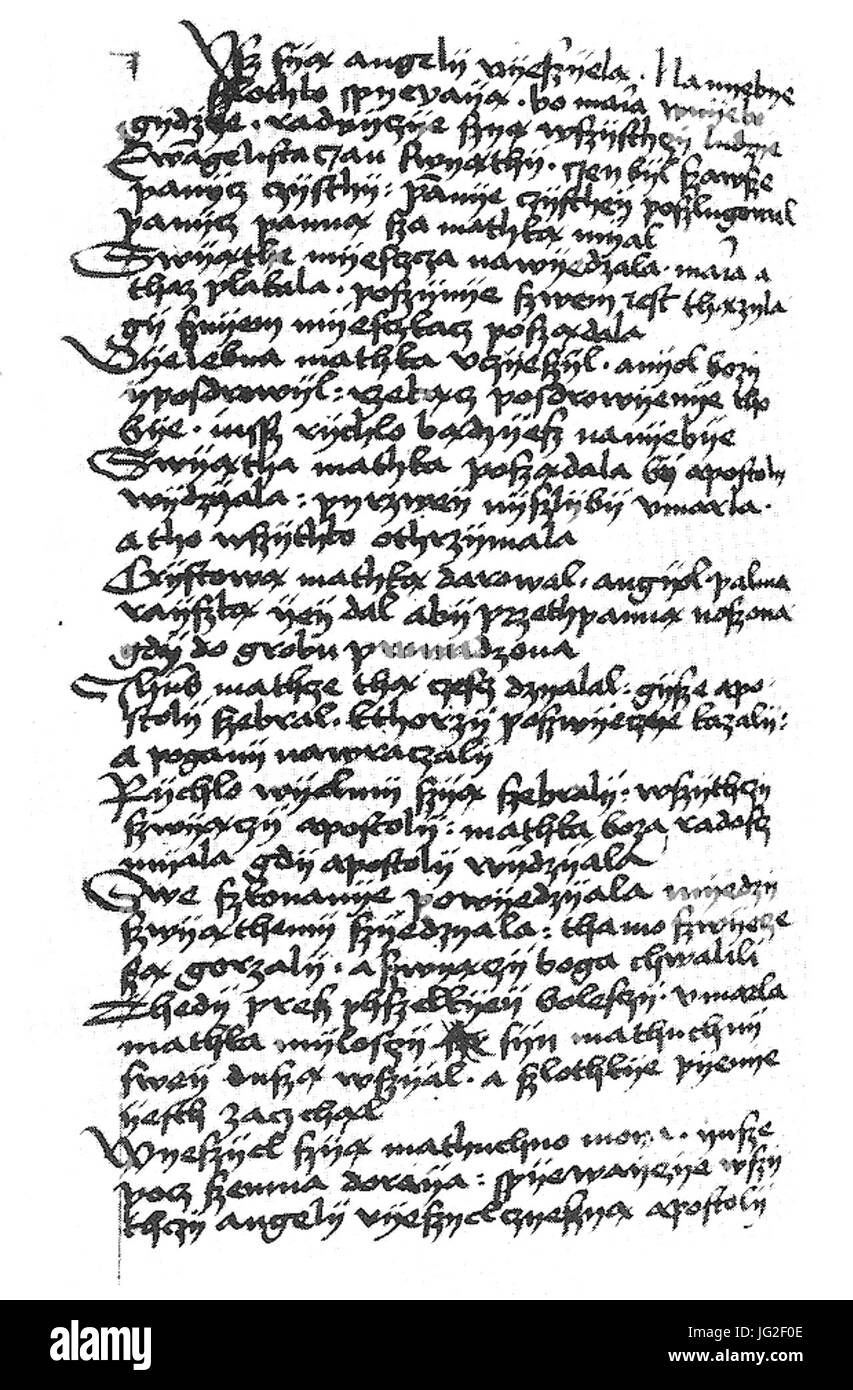 Vsz syya angelij vyeszyela. Na nyebye
slothko spyevaya. bo maia
gydzye. radvyczye szya wszyschczy ludzye
Ewangelista Jan swyathy. then byl zawsze
panycz czysthy: panye czysthey poszlugowal
panycz panna sza mathka myal
Swyathe myescza nawyedzala. maia a
thaz plakala. poszynye szwem jest thazyla
gy sznyem myeszkacz poszadala
Vyelebna mathka vczyeszyl. anyol bozy
yposdrowyl: rzekacz posdrowyenye tho
bye. iusz rychlo badzyesz nanyebye
Swyatha mathka poszadala by apostoly
wydzyala: pyrzwey nyszlyby vmarla.
a tho wszythko othrzymala
Crystowa mathka darowal. angyol palma
rayszka yey dal aby przethpanna noszona
gdy do grobu prowadzona
Jhus mathcze tha czescz dzyalal: gysze apo-
stoly szebral. kthorzy poszwyeczye kazaly:
a pogany nawraczaly
Rychlo wyelmy szya szebraly. wszythczy
szwyaczy apostoly: mathka boza radoscz
myala gdy apostoly wydzyala
Swe szkonanye powyedzyala myedzy
szwyathemy szyedzyala: thamo szwyecze
sza gorzaly. a szwyaczy boga chwalili
Thedy pres wszelkyey bolesczy. vmarla
mathka myloszczy syn mathuchny
swey dusza wszyal. a szlothkye pyenye
yesth zaczchal
Wyeszyel szya mathuchno moya. iusze
pocz szemna doraya: spyewayczye wszy
thczy angely vyeszyel czye szya apostoly
alamy
alamy stock photo
JG2F0E
www.alamy.com